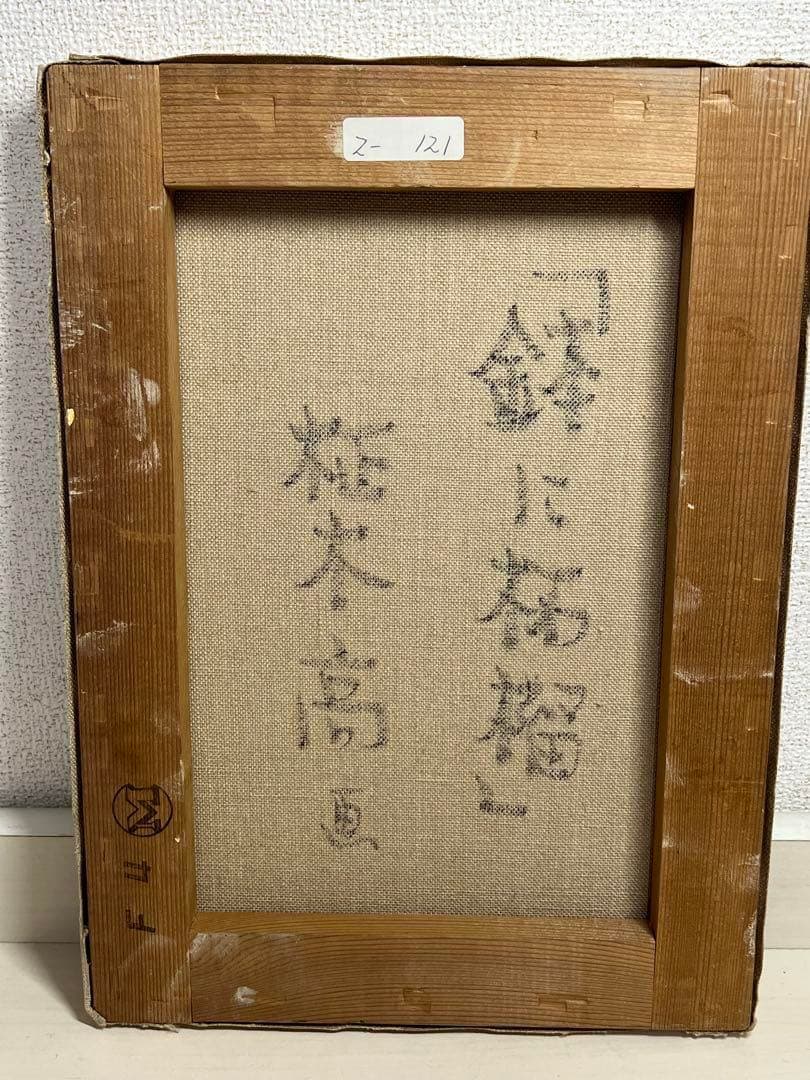 Z- 121
「鉢に柘榴」
柾木高画
M
F4